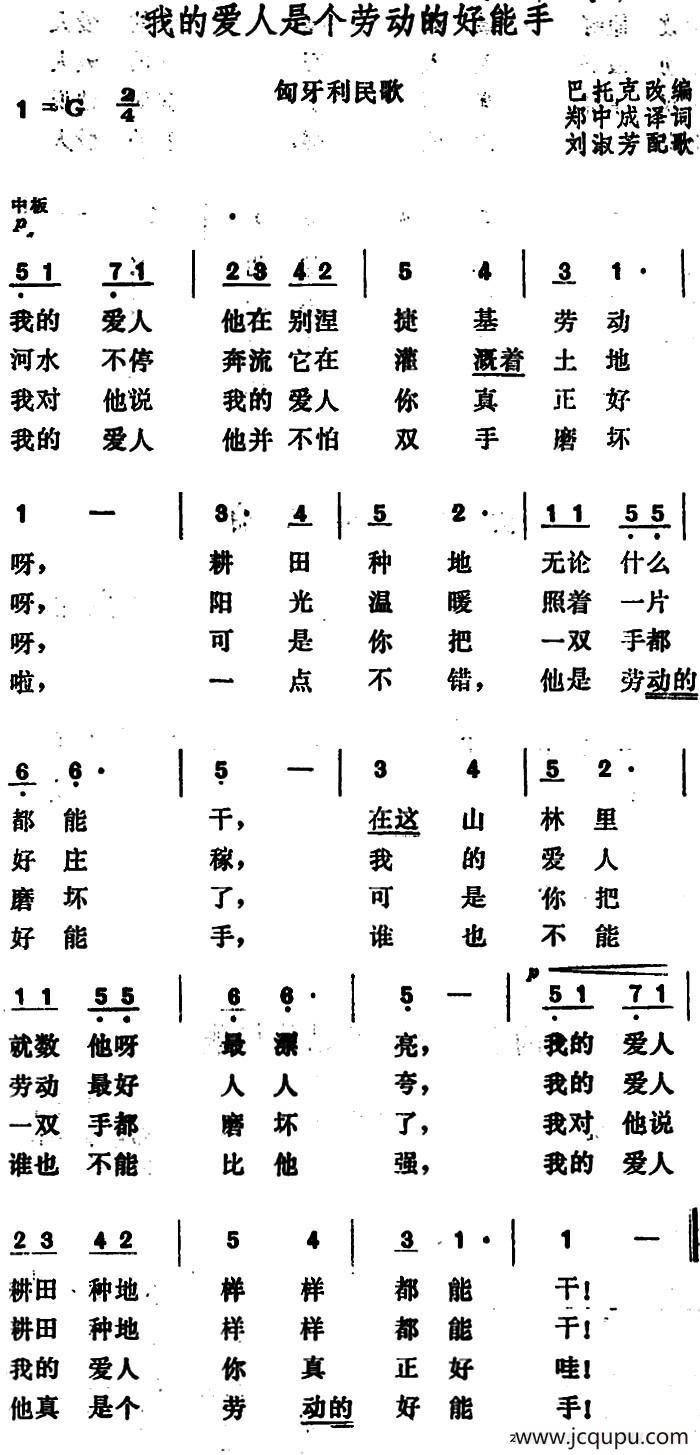 我的爱人是个劳动的好能手
1=G 2/4
匈牙利民歌
巴托克改编
郑中成译词
刘淑芳配歌
中板
p
5 1 7 1 | 2 3 4 2 | 5 4 | 3 1·
我的 爱人 他在 别涅 捷 基 劳 动
河水 不停 奔流 它在 灌 溉着 土 地
我对 他说 我的 爱人 你 真 正 好
我的 爱人 他并 不怕 双 手 磨 坏
1 — | 3· 4 | 5 2· | 1 1 5 5
呀, 耕 田 种 地 无论 什么
呀, 阳 光 温 暖 照着 一片
呀, 可 是 你 把 一双 手都
啦, 一 点 不 错, 他是 劳动的
6 6· | 5 — | 3 4 | 5 2·
都 能 干, 在这 山 林 里
好 庄 稼, 我 的 爱 人
磨 坏 了, 可 是 你 把
好 能 手, 谁 也 不 能
p
1 1 5 5 | 6 6· | 5 — | 5 1 7 1
就数 他呀 最 漂 亮, 我的 爱人
劳动 最好 人 人 夸, 我的 爱人
一双 手都 磨 坏 了, 我对 他说
谁也 不能 比 他 强, 我的 爱人
2 3 4 2 | 5 4 | 3 1· | 1 — ‖
耕田 种地 样 样 都 能 干!
耕田 种地 样 样 都 能 干!
我的 爱人 你 真 正 好 哇!
他真 是个 劳 动的 好 能 手!
www.jcqupu.com